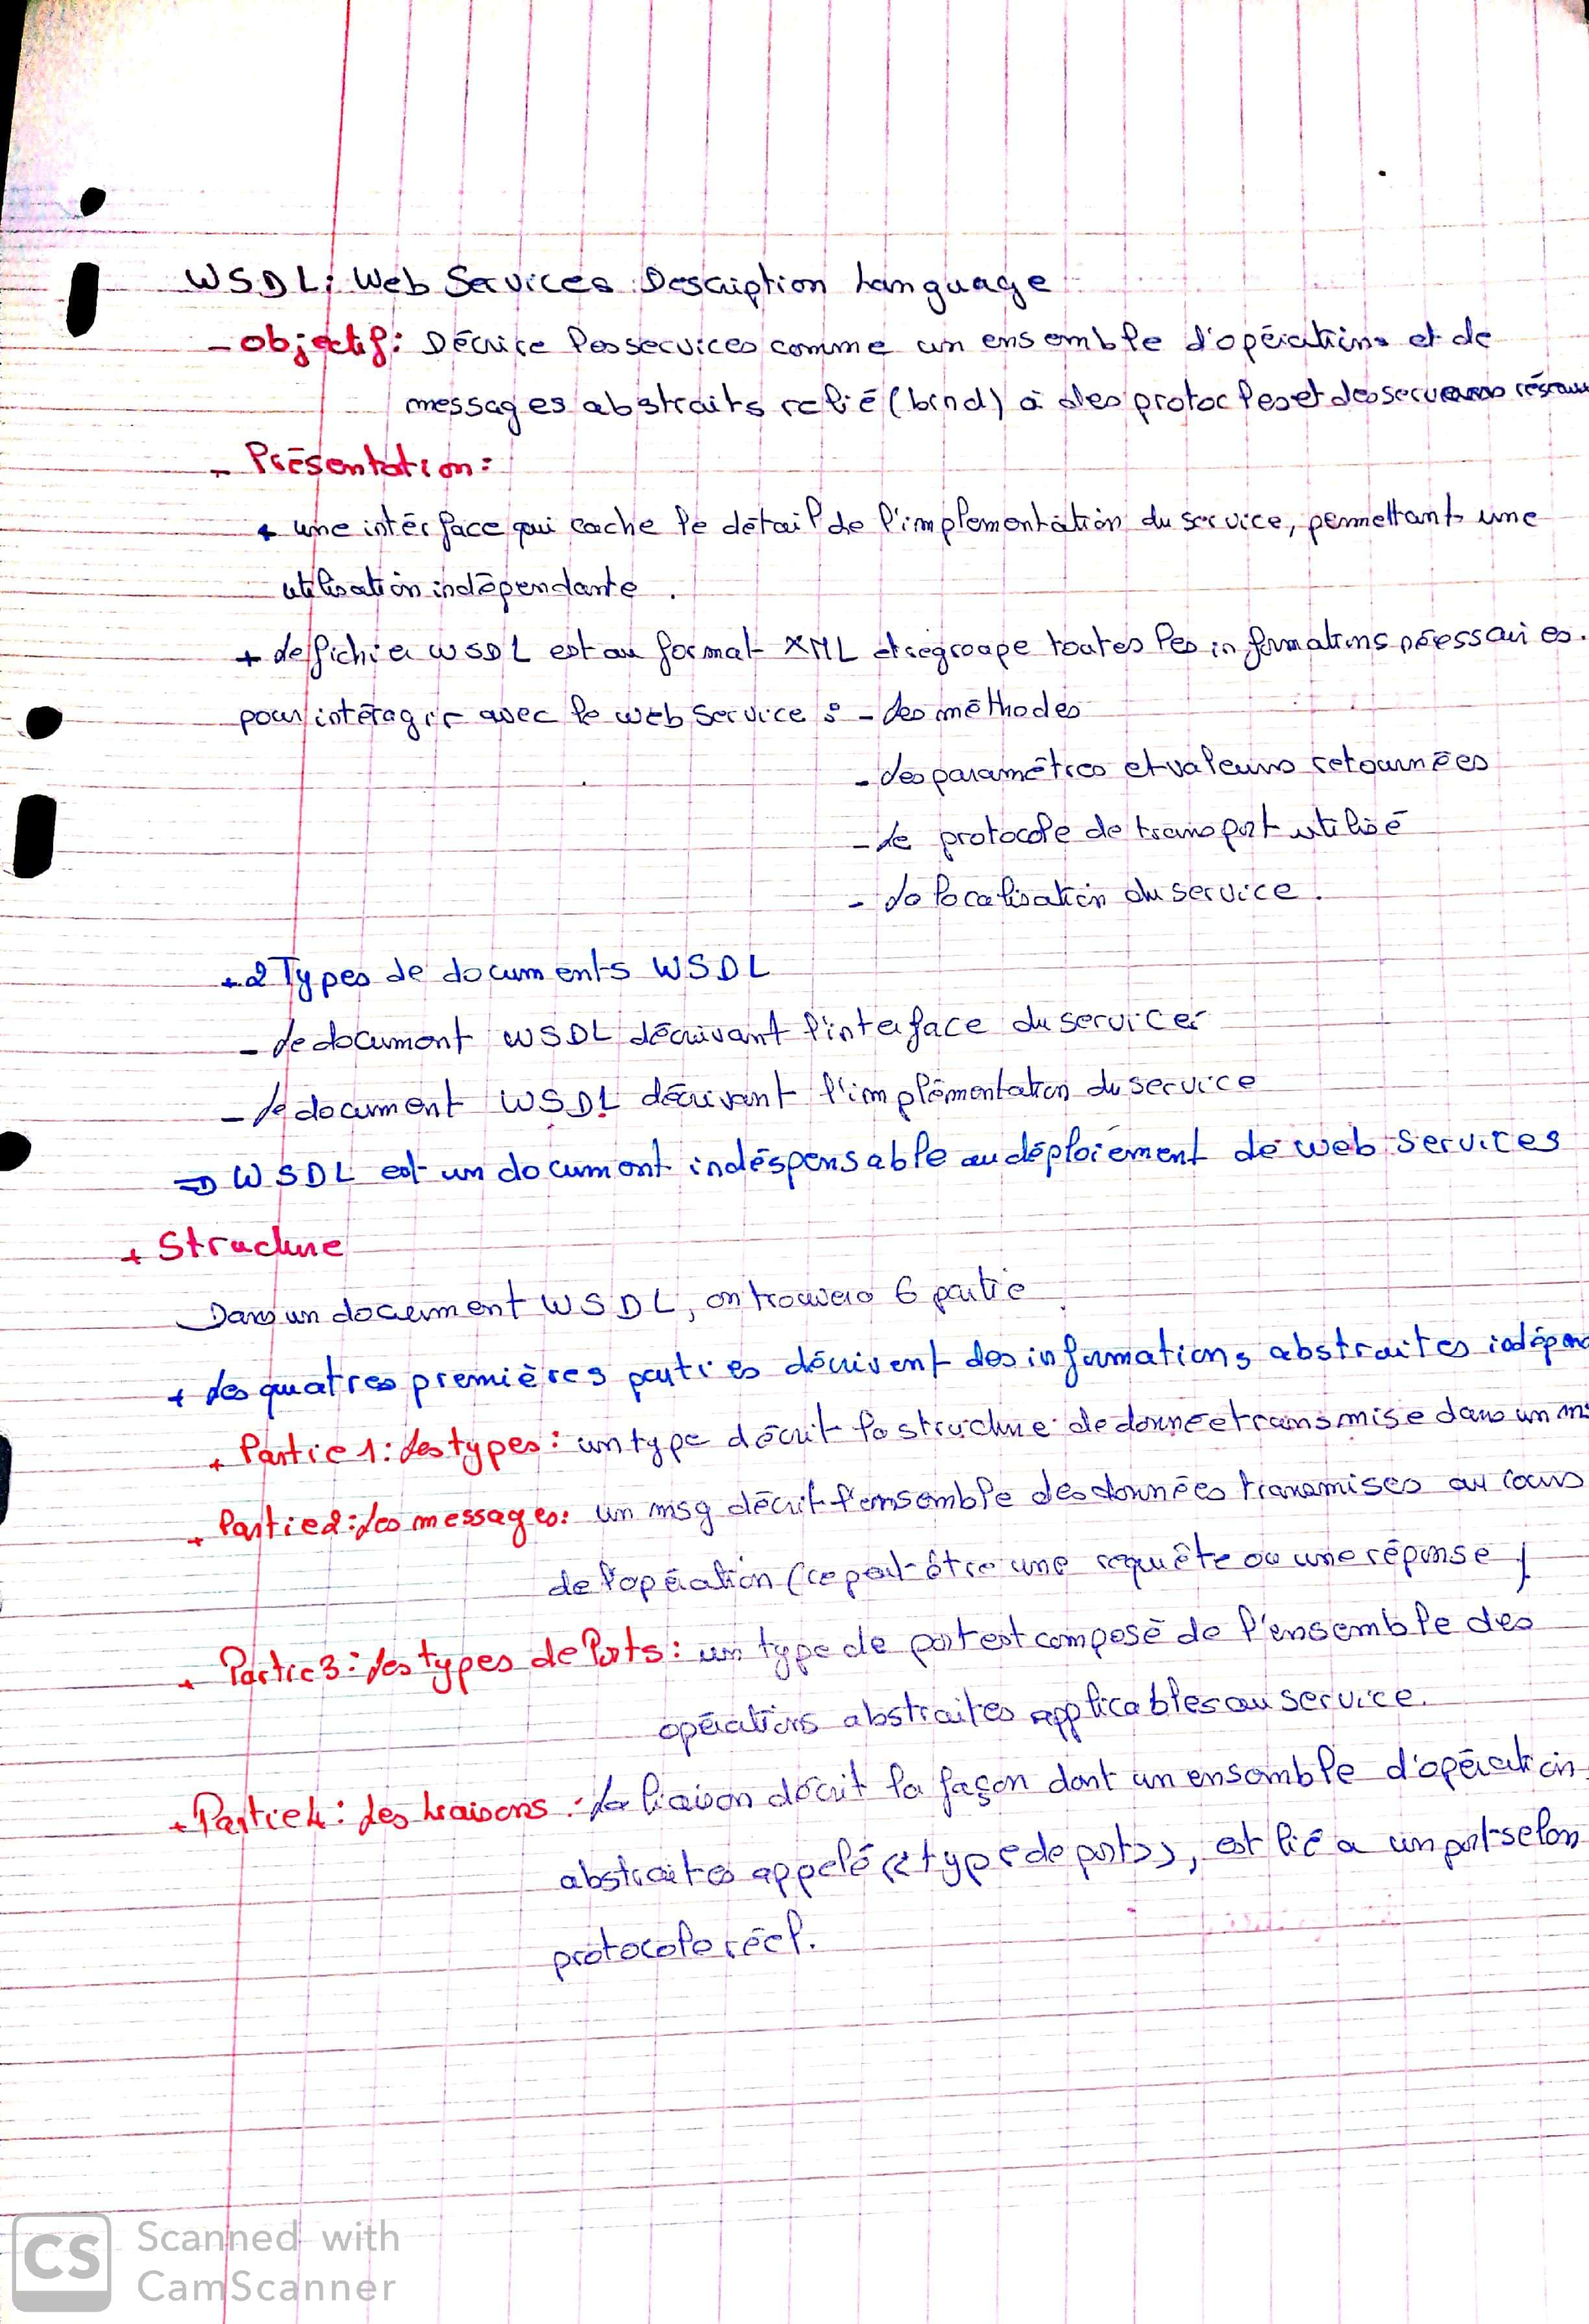 WSDL: Web Services Description Language
- Objectif: Décrire les services comme un ensemble d'opérations et de
messages abstraits relié (bind) à des protocles et des serveurs réseaux
- Présentation:
+ une intérface qui cache le détail de l'implementation du service, permettant une
utilisation indépendante.
+ Le fichier WSDL est au format XML et regroupe toutes les informations néessaires.
pour intéragir avec le web service : - Les méthodes
- Les paramètres et valeurs retournées
- Le protocole de transport utilisé
- La localisation du service.
+ 2 Types de documents WSDL
- Le document WSDL décrivant l'interface du service
- Le document WSDL décrivant l'implémentation du service
⇒ WSDL est un document indéspensable au déploiement de web services
+ Structure
Dans un document WSDL, on trouvera 6 partie
+ Les quatres premières parties décrivent des informations abstraites indépen
+ Partie 1: Les types: un type décrit la structure de donnée transmise dans un
+ Partie 2: Les messages: un msg décrit l'ensemble des données transmises au cours
de l'opération (ce peut-être une requête ou une réponse)
+ Partie 3: Les types de Ports: un type de port est composé de l'ensemble des
opérations abstraites applicables au service.
+ Partie 4: Les liaisons: La liaison décrit la façon dont un ensemble d'opération
abstraites appelé << type de port>>, est lié a un port selon
protocole réel.
CS Scanned with
CamScanner